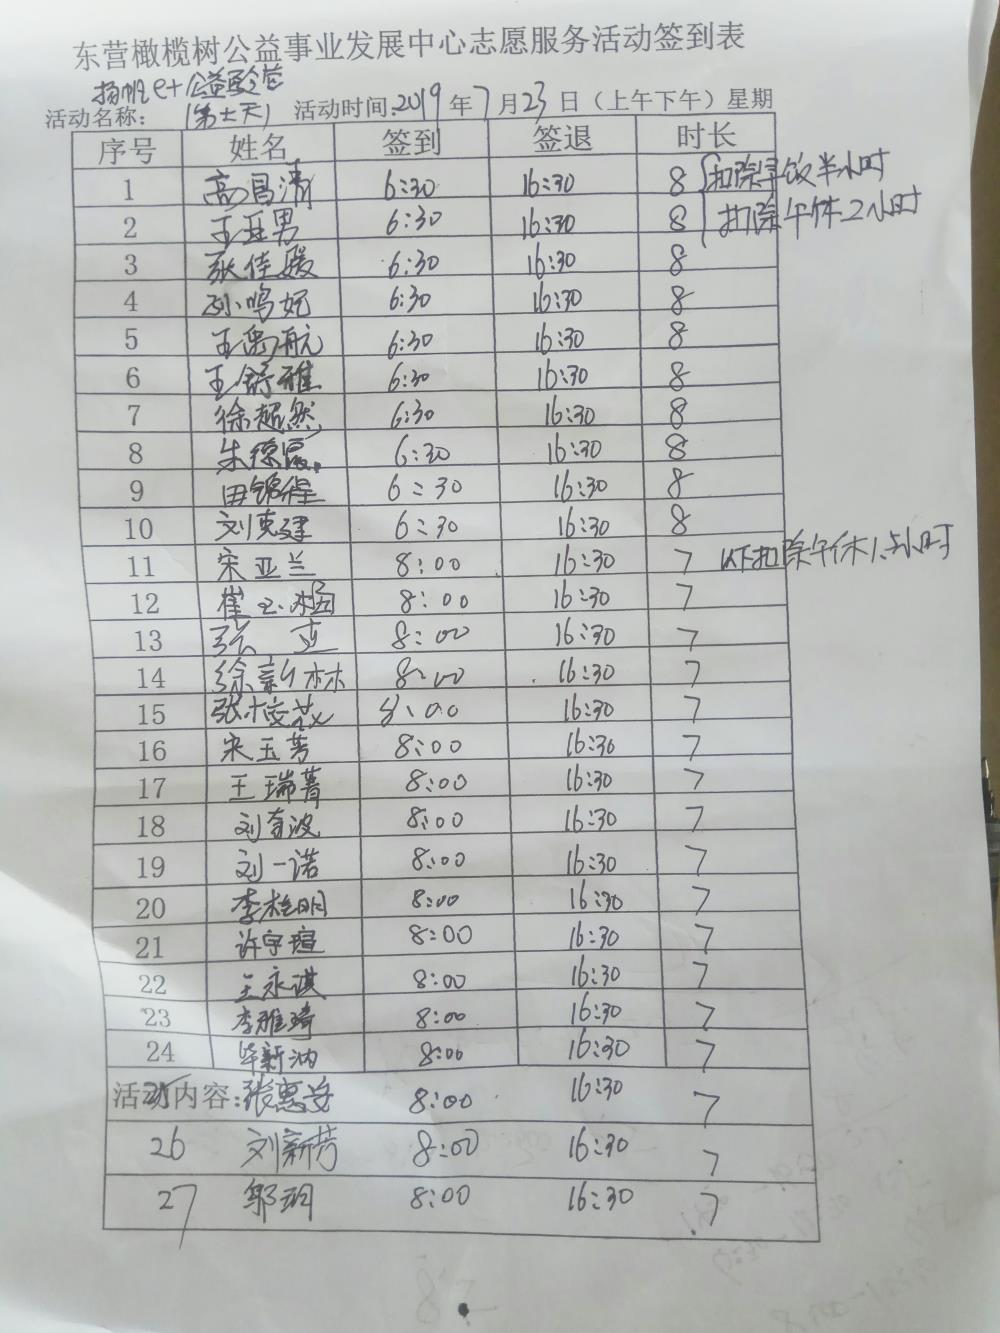 东营橄榄树公益事业发展中心志愿服务活动签到表
扬帆e+公益夏令营
活动名称： (第十天) 活动时间:2019年7月23日（上午下午）星期
序号 姓名 签到 签退 时长
1 高昌清 6:30 16:30 8 扣除早饭半小时
2 王亚男 6:30 16:30 8 扣除午休2小时
3 耿佳媛 6:30 16:30 8
4 孙鸣妃 6:30 16:30 8
5 王禹航 6:30 16:30 8
6 王舒雅 6:30 16:30 8
7 徐超然 6:30 16:30 8
8 朱德 6:30 16:30 8
9 田锦程 6:30 16:30 8
10 刘克建 6:30 16:30 8
11 宋亚兰 8:00 16:30 7 以下扣除午休1.5小时
12 崔玉 8:00 16:30 7
13 张 8:00 16:30 7
14 徐新林 8:00 16:30 7
15 张 8:00 16:30 7
16 宋玉芳 8:00 16:30 7
17 王瑞菁 8:00 16:30 7
18 刘奇波 8:00 16:30 7
19 刘一诺 8:00 16:30 7
20 李明 8:00 16:30 7
21 许宇瑄 8:00 16:30 7
22 王永琪 8:00 16:30 7
23 李雅琦 8:00 16:30 7
24 毕新汭 8:00 16:30 7
活动内容: 25 张惠安 8:00 16:30 7
26 刘新芳 8:00 16:30 7
27 郭玥 8:00 16:30 7